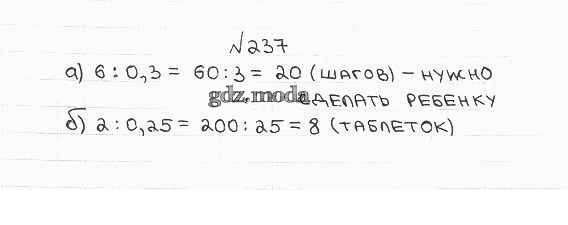 №237
а) 6 : 0,3 = 60 : 3 = 20 (шагов) – нужно
gdz.moda
сделать ребенку
б) 2 : 0,25 = 200 : 25 = 8 (таблеток)